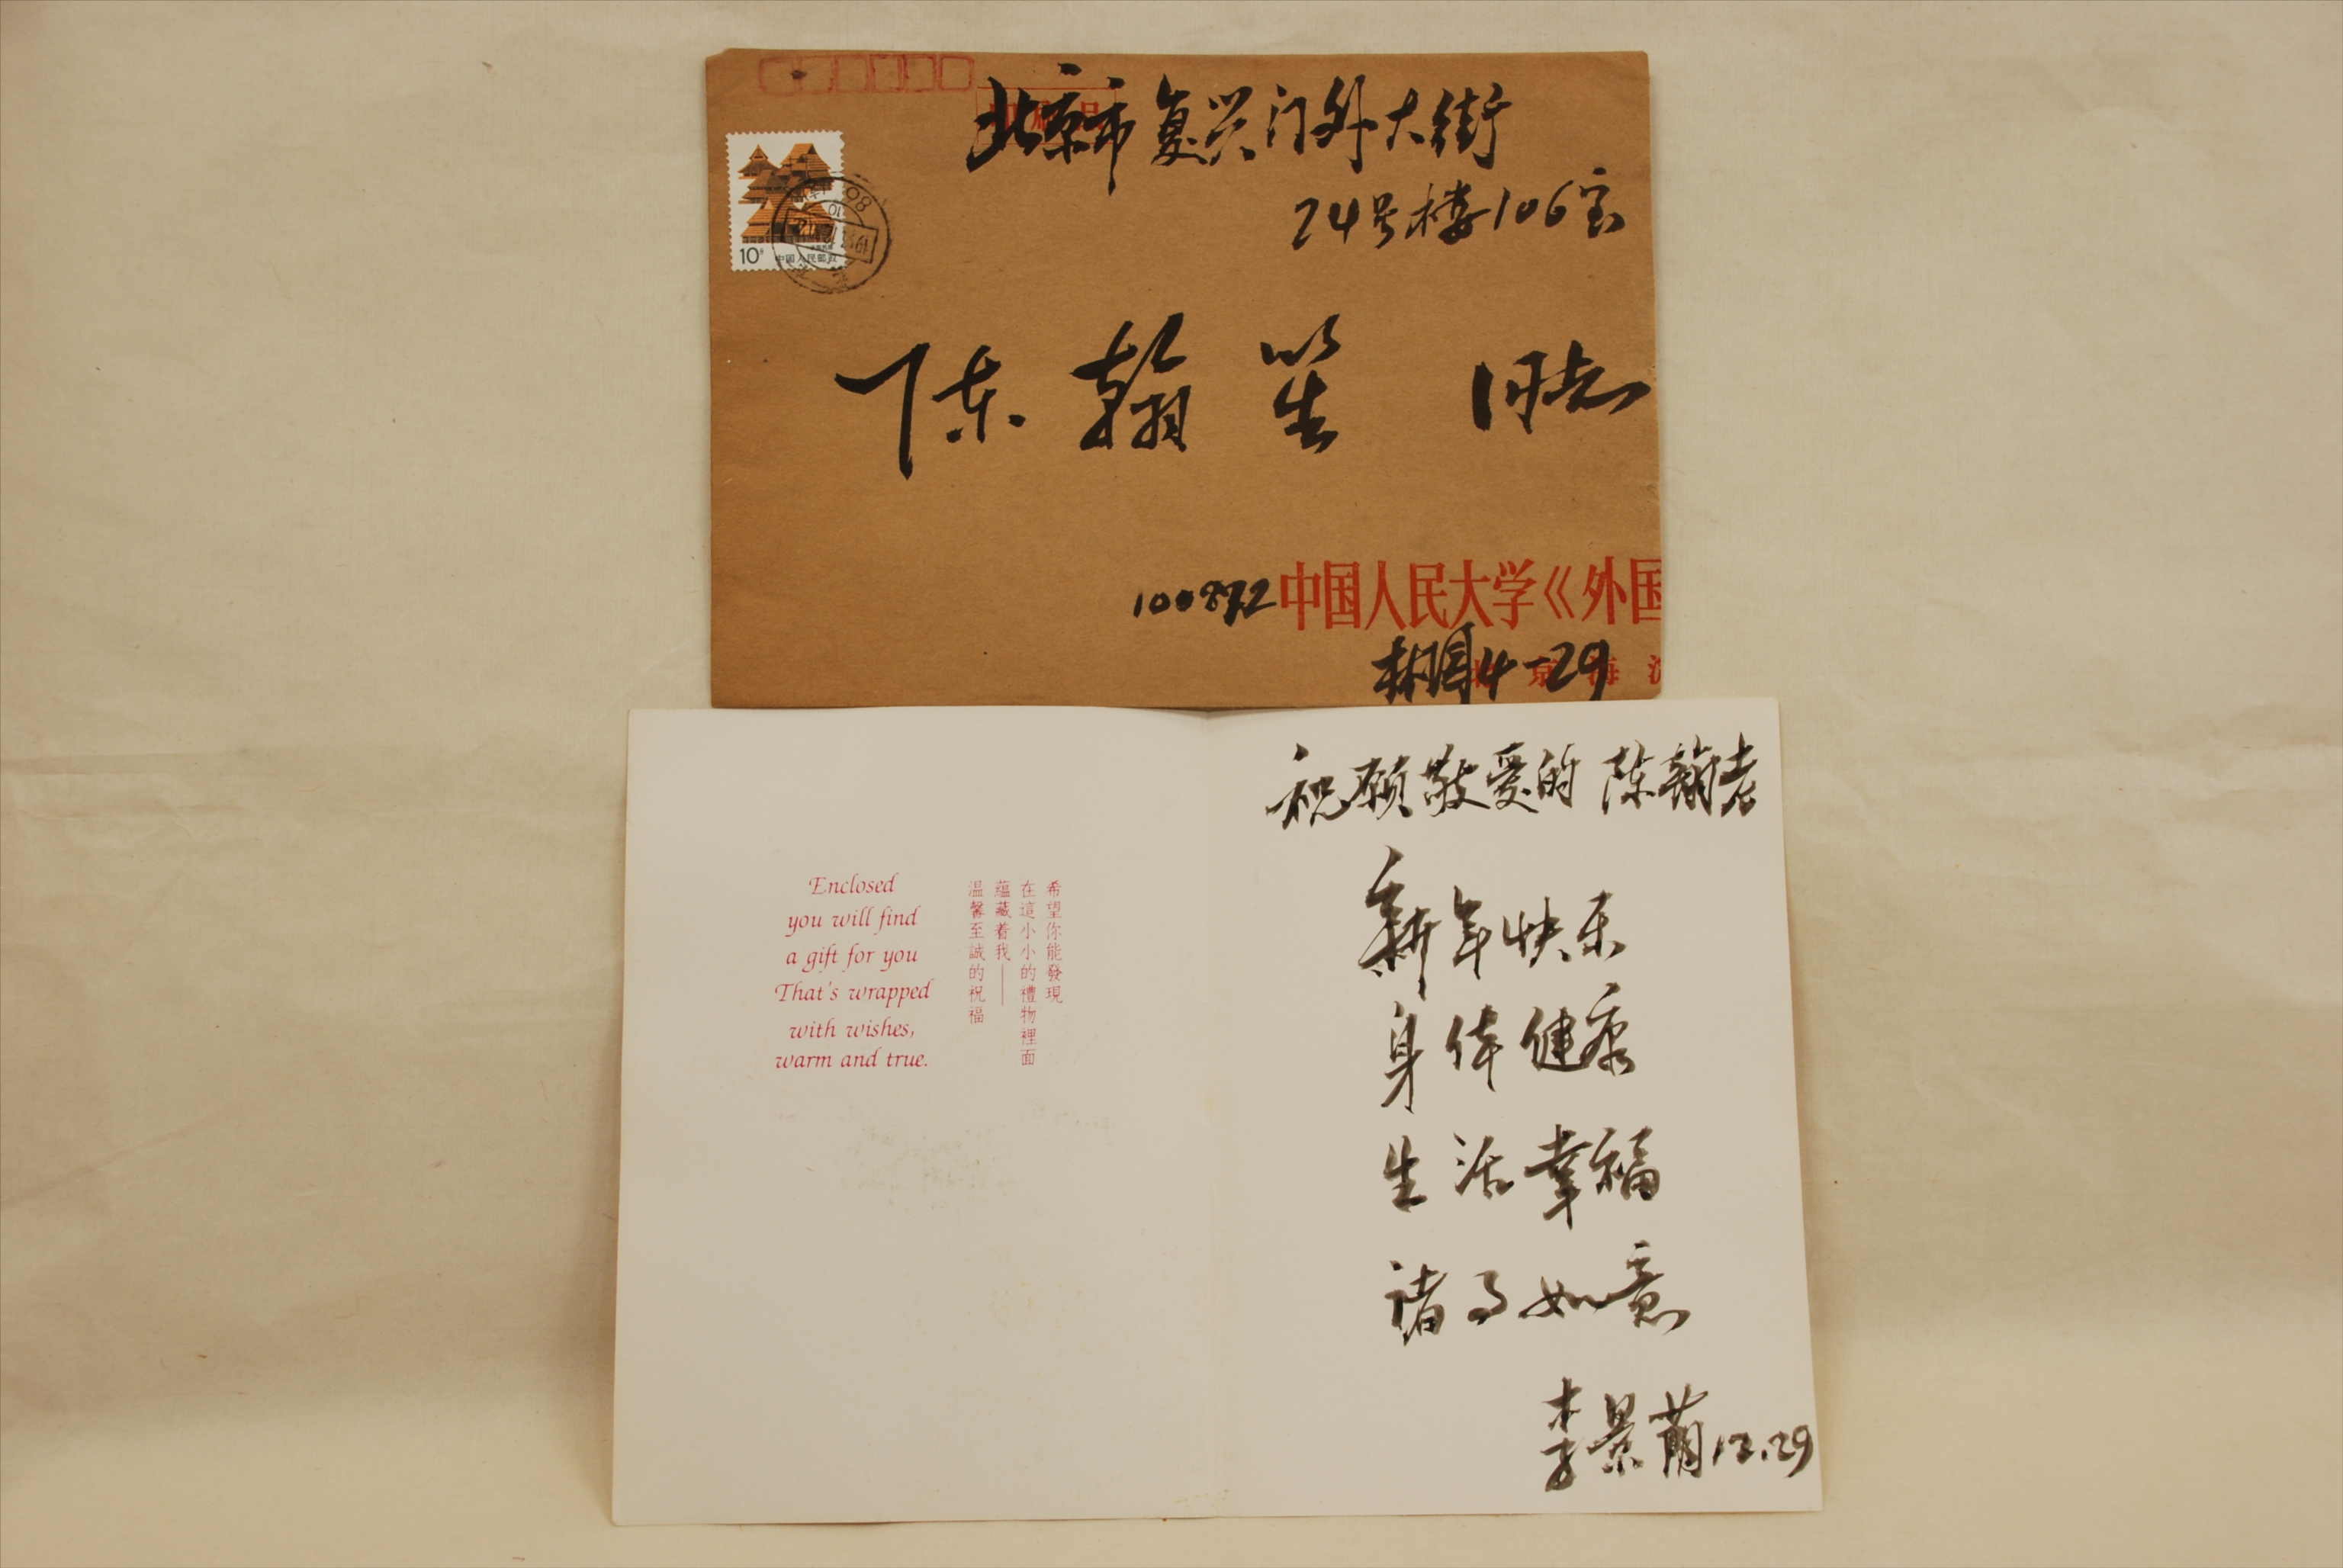 北京市复兴门外大街
24号楼106室
10分 中国人民邮政
陈翰笙 同志
100872 中国人民大学《外国
林园4-29
北京海
祝愿敬爱的陈翰老
新年快乐
身体健康
生活幸福
诸事如意
李景 12.29
Enclosed
you will find
a gift for you
That's wrapped
with wishes,
warm and true.
希望你能發現
在這小小的禮物裡面
蘊藏着我——
溫馨至誠的祝福